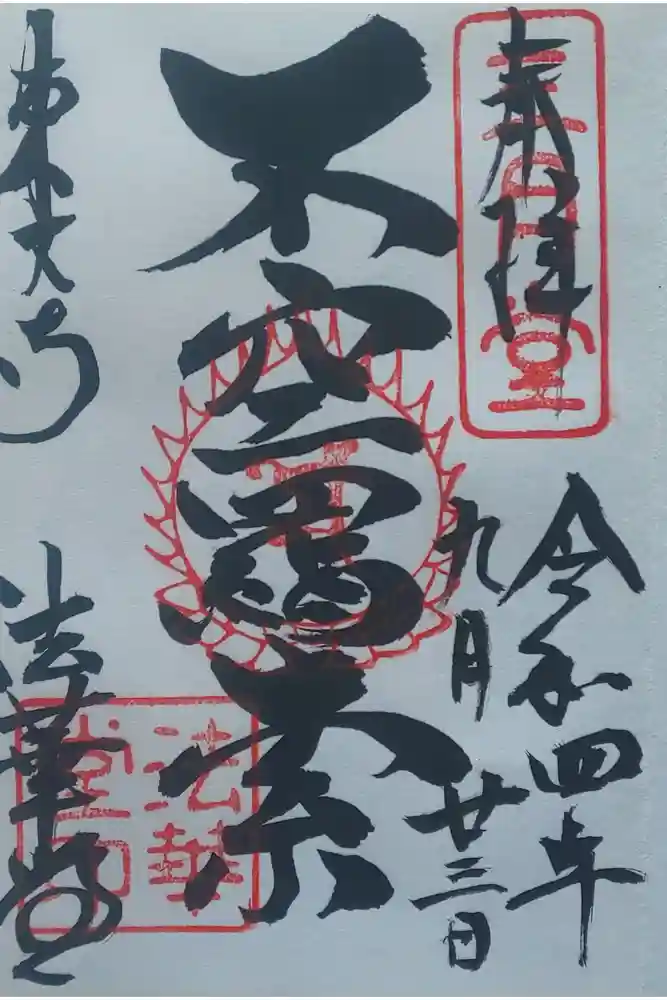 奉拝
三月堂
令和四年
九月廿三日
不空羂索
東大寺
法華堂
法華堂印